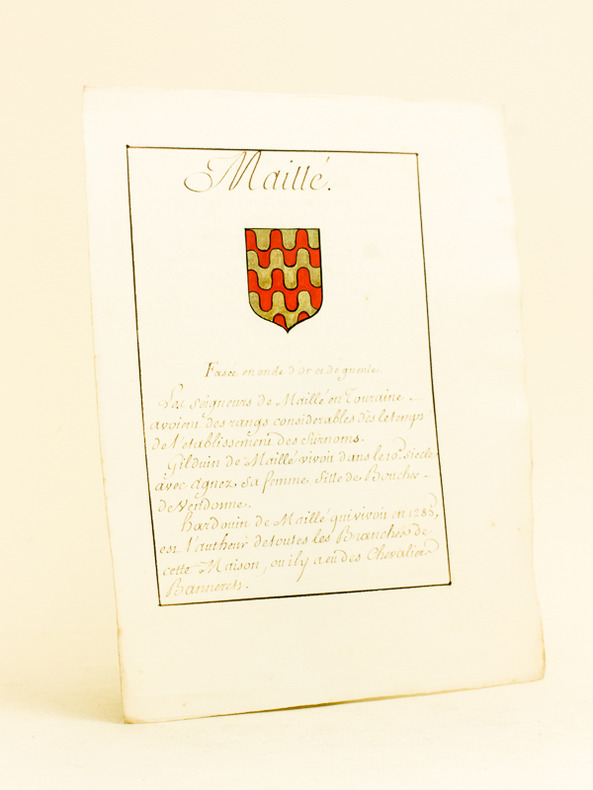 Maillé.
Fascé en onde d'Or et de gueule.
Les Seigneurs de Maillé en Touraine
avoient des rangs considerables dès le temps
de l'etablissement des Surnoms.
Gilduin de Maillé vivoit dans le 10e. siecle
avec Agnez, sa femme, fille de Bouchar
de Vendome.
Hardouin de Maillé qui vivoit en 1285,
est l'autheur de toutes les Branches de
cette Maison, ou il y a eu des Chevaliers
Bannerets.